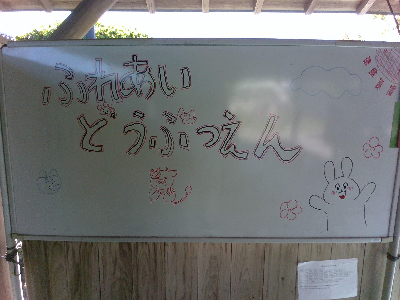 ふれあい
どうぶつえん